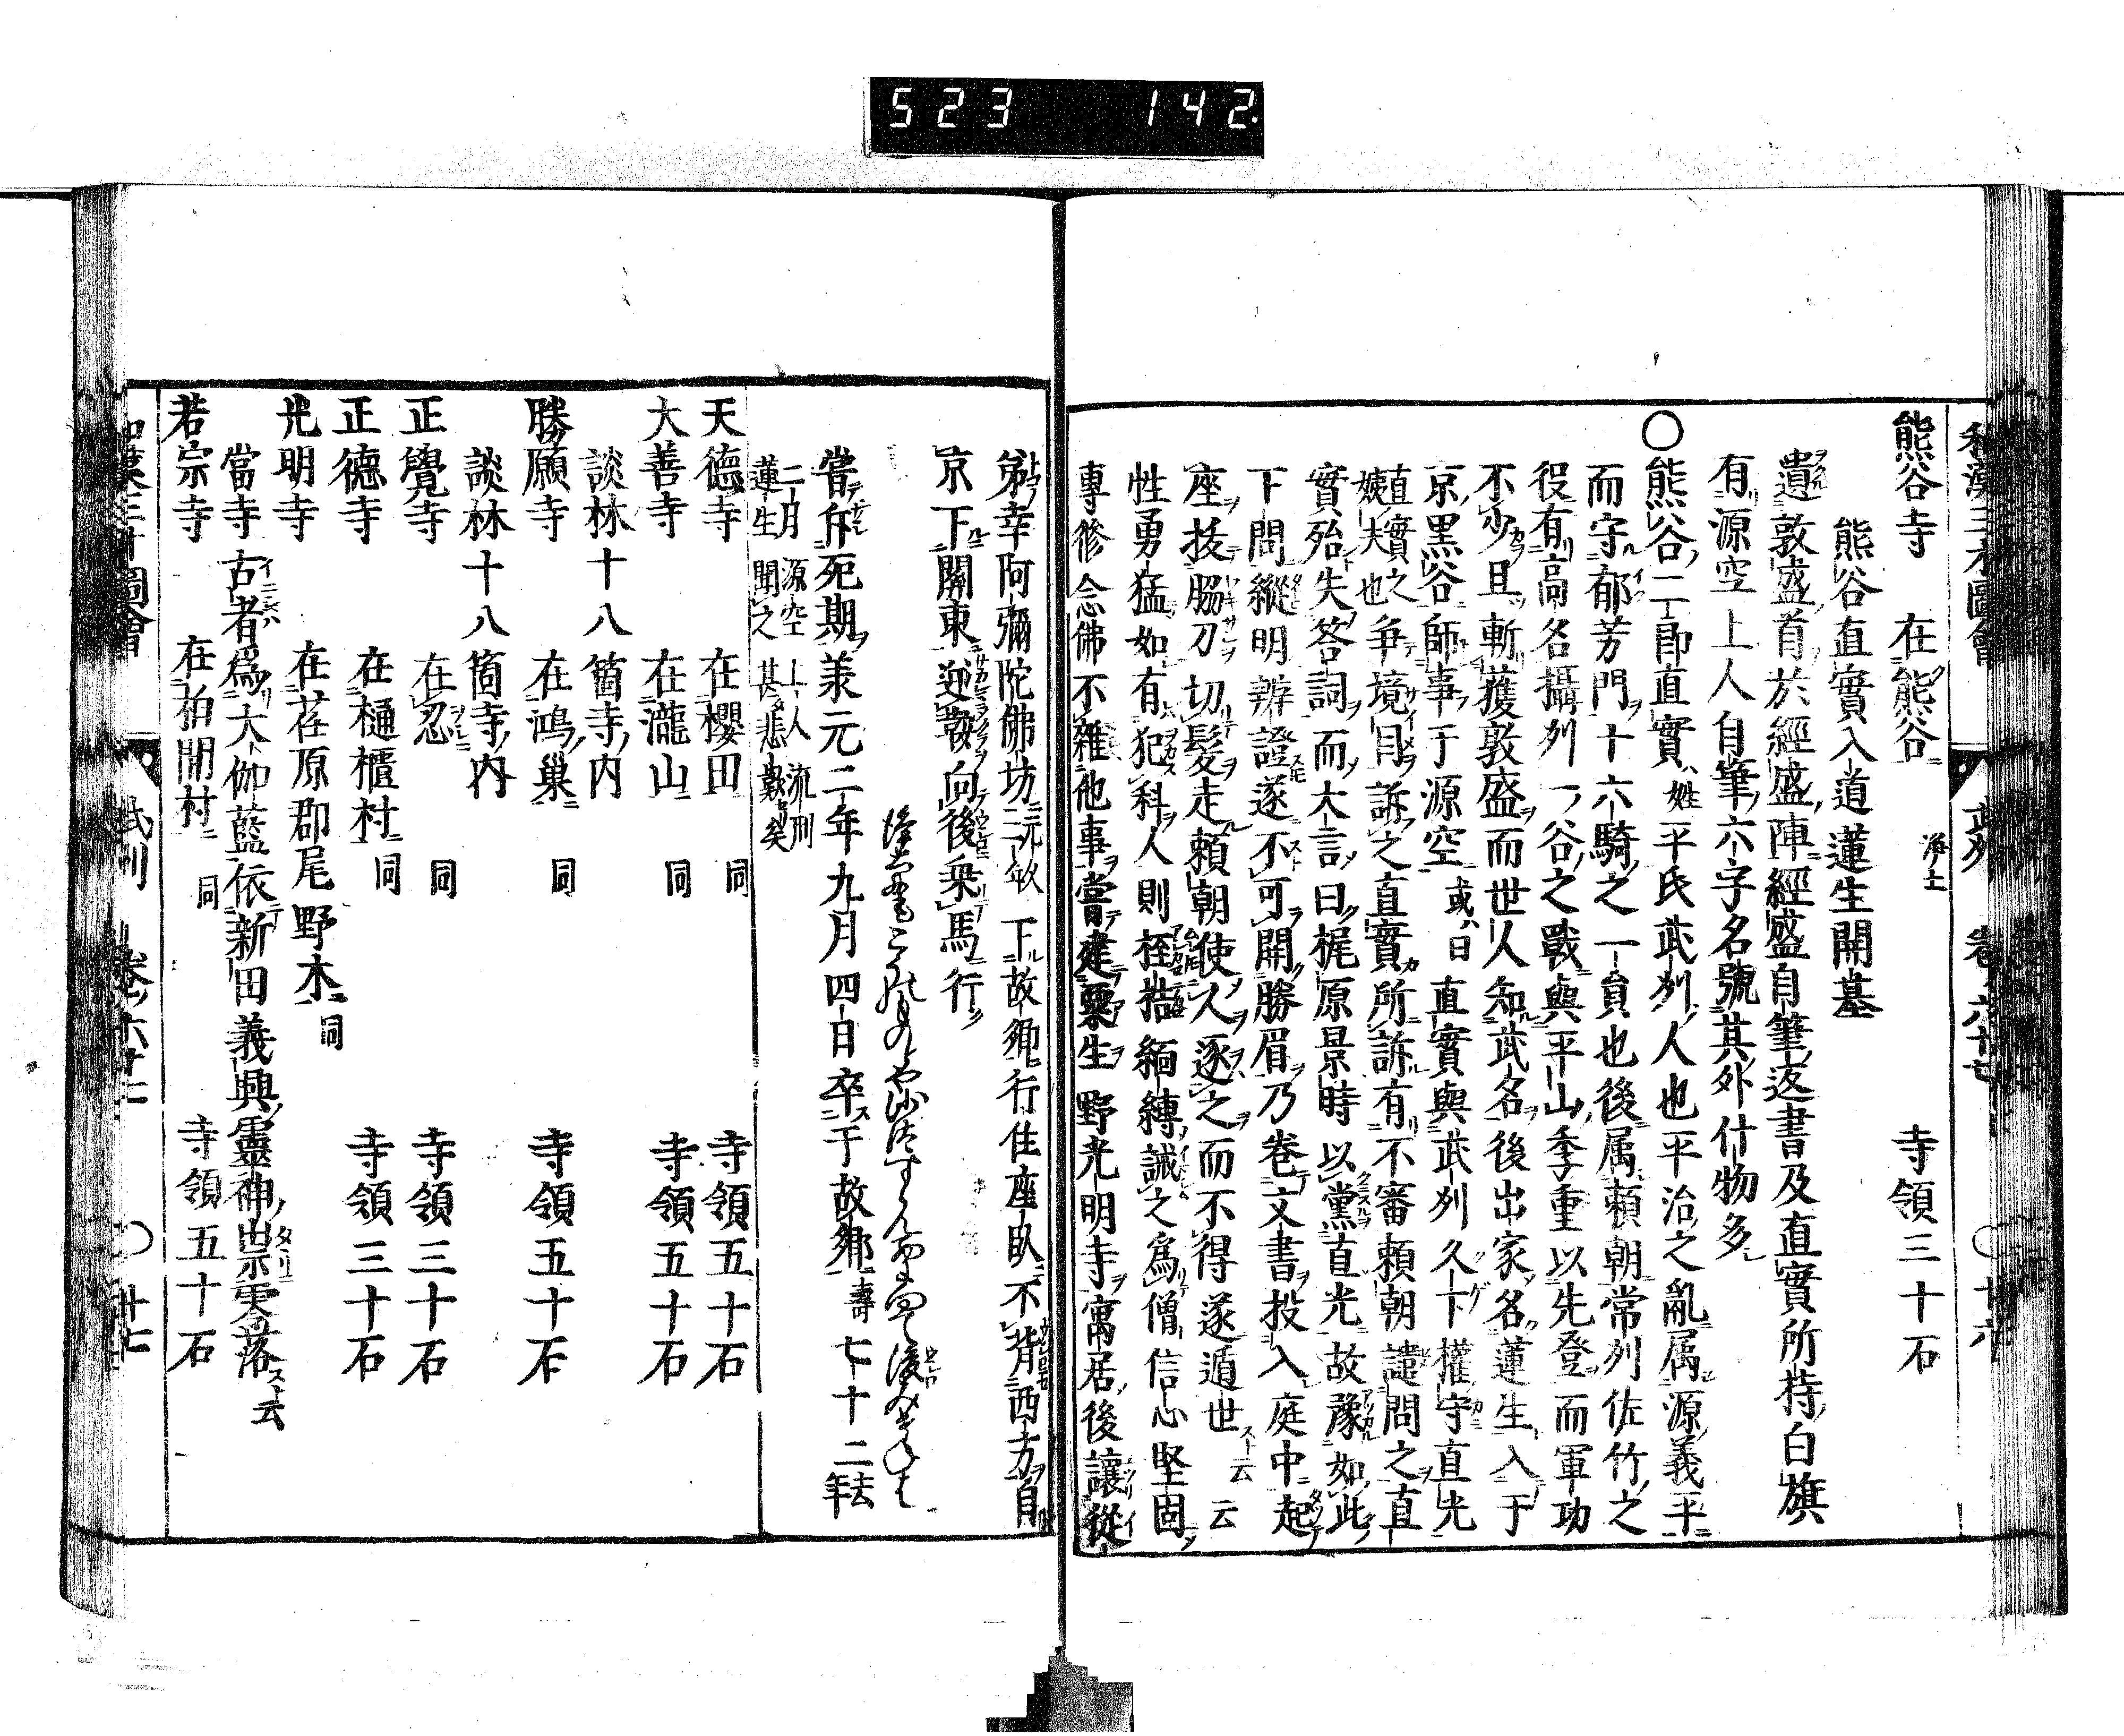 523 142
和漢三才圖會 武州 卷ノ六十七 ○ 十六
熊谷寺 在熊谷 淨土 寺領三十石
熊谷直實入道蓮生開基
遺敦盛首於經盛陣經盛自筆返書及直實所持白旗
有源空上人自筆六字名號其外什物多
○熊谷二郎直實姓平氏武州人也平治之亂属源義平
而守郁芳門十六騎之一員也後属頼朝常列佐竹之
役有高名攝州一谷之戰與平山季重以先登而軍功
不少且斬獲敦盛而世人知武名後出家名蓮生入于
京黒谷師事于源空或曰直實與武州久下權守直光
直實之姨夫也爭境目訴之直實所訴有不審頼朝譴問之直
實殆失答詞而大言曰梶原景時以黨直光故豫如此
下問縱明辨證遂不可開勝眉乃卷文書投入庭中起
座抜脇刀切髪走頼朝使人逐之而不得遂遁世云云
性勇猛如有犯科人則桎梏緬縛誡之爲僧信心堅固
專修念佛不雜他事嘗建粟生野光明寺寓居後讓從
弟幸阿彌陀佛坊元敏下故郷行住座臥不背西方自
京下關東逆鞍向後乗馬行
當斥死期兼元二年九月四日卒于故郷壽七十二
二月源空上人流刑蓮生聞之甚悲歎矣
天德寺 在櫻田 同 寺領五十石
大善寺 在瀧山 同 寺領五十石
談林十八箇寺内
勝願寺 在鴻巢 同 寺領五十石
談林十八箇寺内
正覺寺 在忍 同 寺領三十石
正德寺 在樋櫃村 同 寺領三十石
光明寺 在荏原郡尾野木 同
當寺古者爲大伽藍依新田義興靈神祟零落云
若宗寺 在柏間村 同 寺領五十石
和漢三才圖會 武州 卷ノ六十七 ○ 廿七